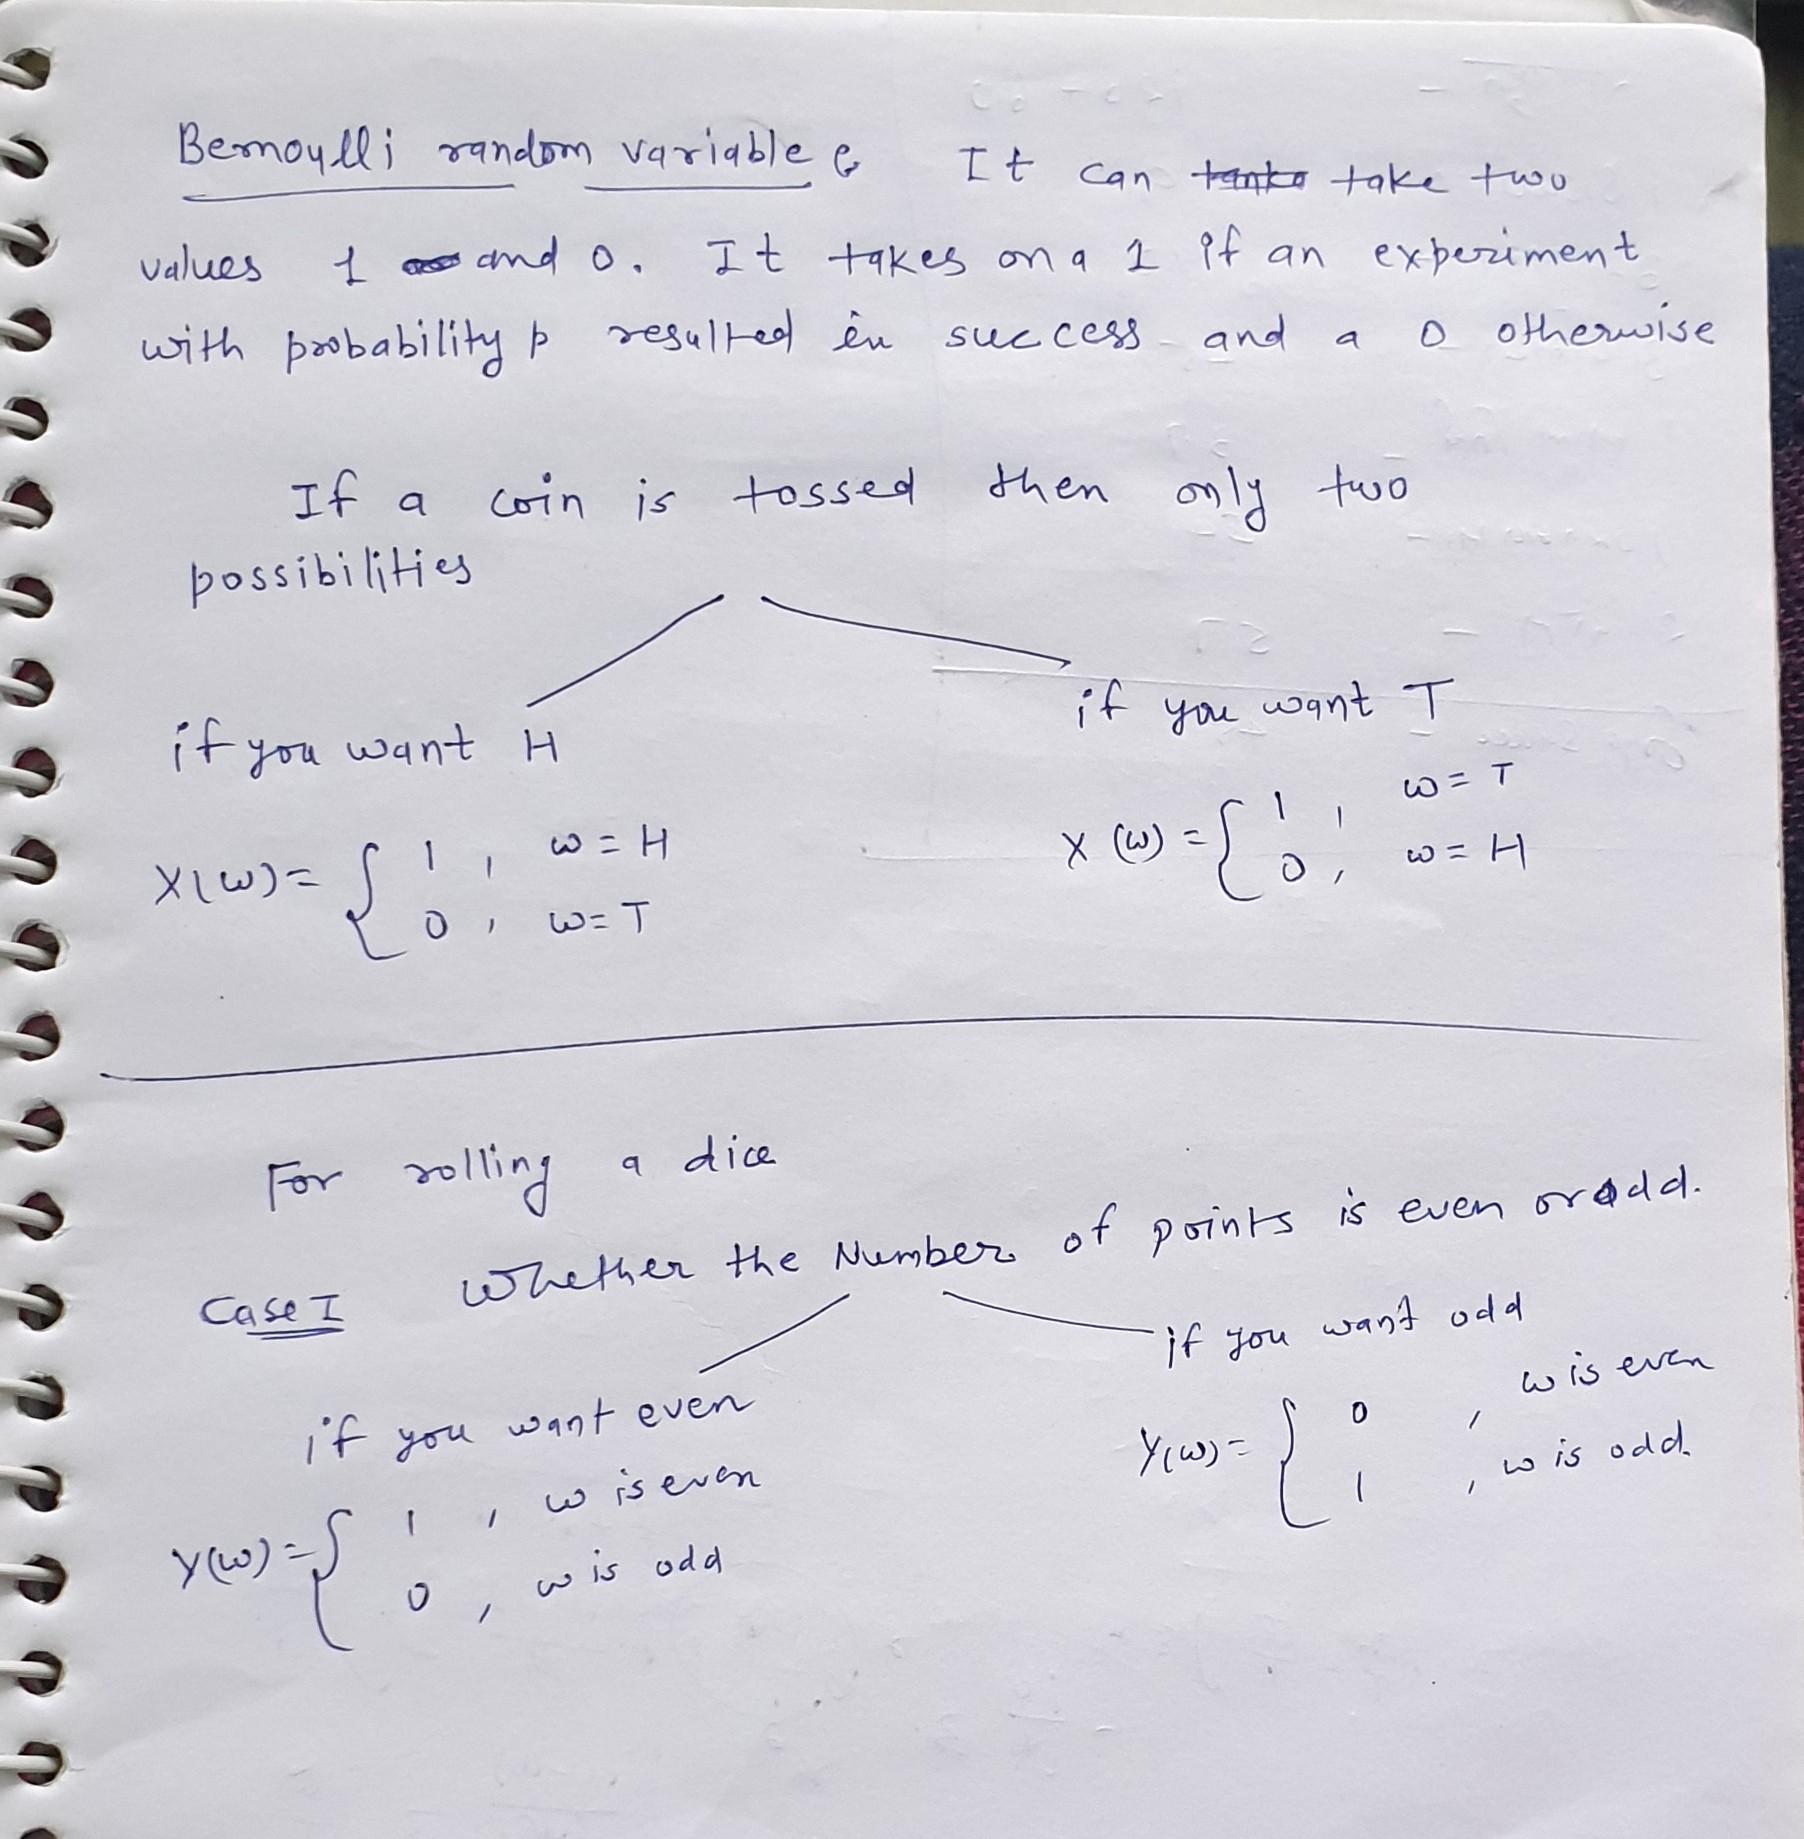 Bernoulli random variable : It can take two
values 1 and 0. It takes on a 1 if an experiment
with probability p resulted in success and a 0 otherwise
If a coin is tossed then only two
possibilities
if you want H
X(ω) = { 1 , ω = H
0 , ω = T
if you want T
X (ω) = { 1 , ω = T
0 , ω = H
For rolling a dice
Case I Whether the Number of points is even or odd.
if you want even
Y(ω) = { 1 , ω is even
0 , ω is odd
if you want odd
Y(ω) = { 0 , ω is even
1 , ω is odd.